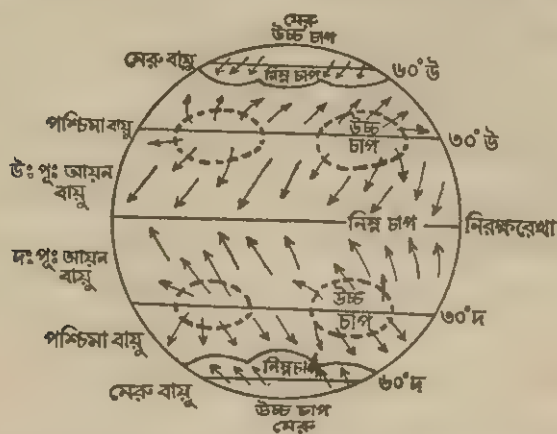 মেরু
উচ্চ চাপ
মেরু বায়ু
নিম্ন চাপ
৬০°উ
পশ্চিমা বায়ু
উচ্চ
চাপ
৩০°উ
উঃ পূঃ আয়ন
বায়ু
নিম্ন চাপ
নিরক্ষরেখা
দঃ পূঃ আয়ন
বায়ু
উচ্চ
চাপ
৩০°দ
পশ্চিমা বায়ু
নিম্নচাপ
মেরু বায়ু
৬০°দ
উচ্চ চাপ
মেরু